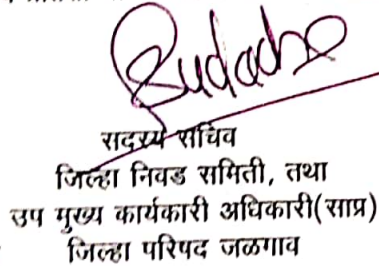 सदस्य सचिव
जिल्हा निवड समिती, तथा
उप मुख्य कार्यकारी अधिकारी(साप्र)
जिल्हा परिषद जळगाव